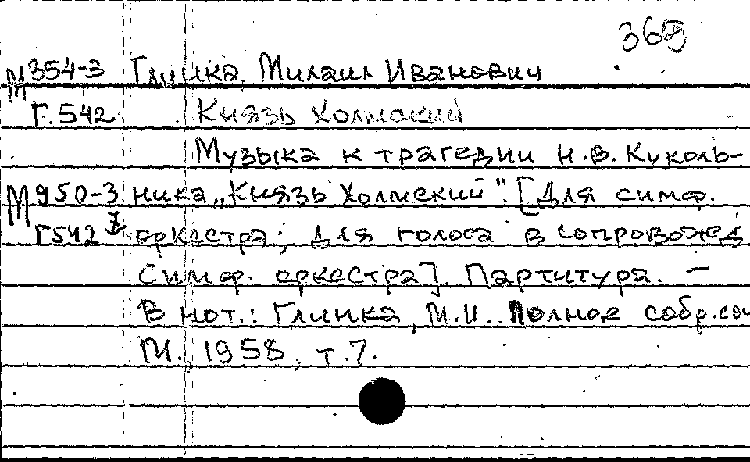 365
М354-3 Глинка, Михаил Иванович
Г.542 Князь Холмский
Музыка к трагедии Н.В. Куколь-
М950-3 ника „Князь Холмский". [Для симф.
Г542 оркестра; для голоса в сопровожд
симф. оркестра]. Партитура. –
В нот.: Глинка, М.И. Полное собр. соч
М., 1958, т.7.